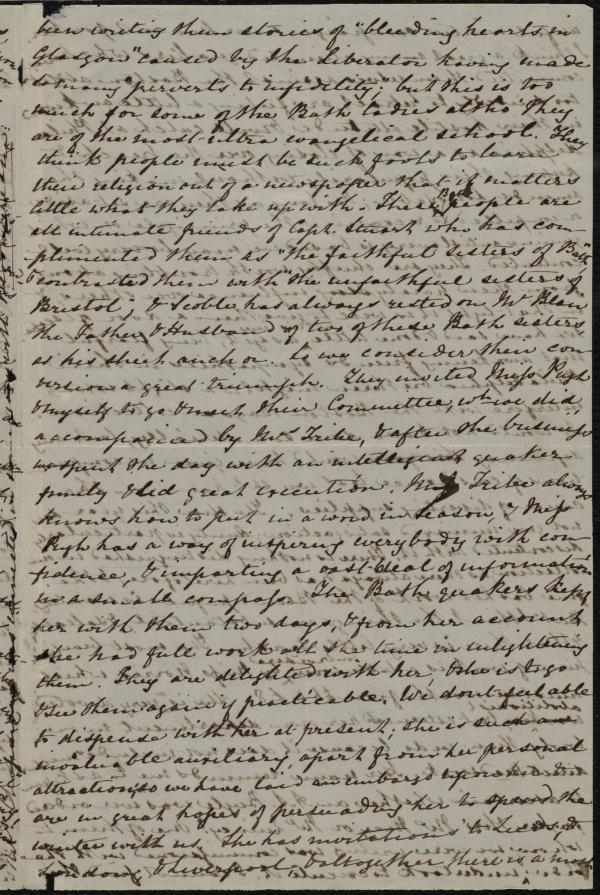 been writing them stories of "bleeding hearts in
Glasgow" caused by the Liberator having made
so many "perverts to infidelity;" but this is too
much for some of the Bath ladies altho' they
are of the most ultra evangelical school. They
think people must be such fools to learn
their religion out of a newspaper that it matters
little what they take up with. These Bath people are
all intimate friends of Capt. Stuart who has com-
plimented them as "the faithful sisters of Bath"
& contrasted them with "the unfaithful sisters of
Bristol"; & Scoble has always rested on Mr Blair
the Father & Husband of two of these Bath sisters
as his sheet anchor. So we consider their con-
version a great triumph. They invited Miss Pugh
& myself to go & meet their Committee, wh we did,
accompanied by Mrs Tribe, & after the business
we spent the day with an intelligent quaker
family & did great execution. Mrs Tribe always
knows how to put in a word in season, & Miss
Pugh has a way of inspiring everybody with con-
fidence, & imparting a vast deal of information
in a small compass. The Bath quakers kept
her with them two days, & from her account
she had full work all the time in enlightening
them. They are delighted with her, & she is to go
& see them again if practicable. We dont feel able
to dispense with her at present; she is such an
invaluable auxiliary, apart from her personal
attractions, so we have laid an embargo upon her &
are in great hopes of persuading her to spend the
winter with us. She has invitations to Leeds, &
London, & Liverpool, & altogether there is a most